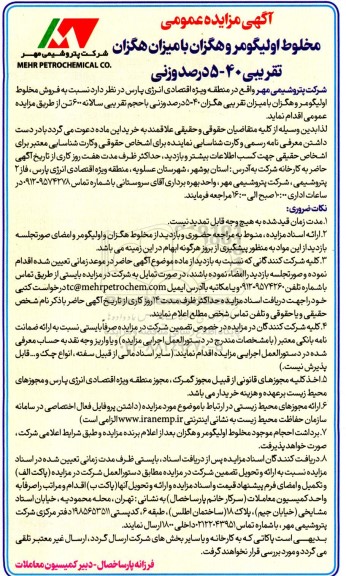 آگهی مزایده عمومی
مخلوط اولیگومر و هگزان با میزان هگزان
تقریبی ۴۰-۵ درصد وزنی
شرکت پتروشیمی مهر
MEHR PETROCHEMICAL CO.
شرکت پتروشیمی مهر واقع در منطقه ویژه اقتصادی انرژی پارس در نظر دارد نسبت به فروش مخلوط
اولیگومر و هگزان با میزان تقریبی هگزان ۴۰-۵ درصد وزنی با حجم تقریبی سالانه ۶۰۰ تن از طریق مزایده
عمومی اقدام نماید.
لذا بدین وسیله از کلیه متقاضیان حقوقی و حقیقی علاقمند به خرید این ماده دعوت می گردد با در دست
داشتن معرفی نامه رسمی و کارت شناسایی نماینده برای اشخاص حقوقی و کارت شناسایی معتبر برای
اشخاص حقیقی جهت کسب اطلاعات بیشتر و بازدید، حداکثر ظرف مدت هفت روز کاری از تاریخ آگهی
حاضر به کارخانه شرکت به آدرس: استان بوشهر، شهرستان عسلویه، منطقه ویژه اقتصادی پارس، فاز ۲
پتروشیمی، شرکت پتروشیمی مهر، واحد بهره برداری آقای سروستانی با شماره تماس ۰۹۱۲۰۹۵۷۴۳۷۸ در
ساعات اداری ۱۰:۰۰ صبح الی ۱۶:۰۰ مراجعه فرمایند.
نکات ضروری:
۱. مدت زمان قید شده به هیچ وجه قابل تمدید نیست.
۲. ارائه اسناد مزایده، منوط به مراجعه حضوری و بازدید از مخلوط هگزان و اولیگومر و امضای صورتجلسه
بازدید از این مواد به منظور پیشگیری از بروز هرگونه ابهام در این زمینه می باشد.
۳. کلیه شرکت کنندگانی که نسبت به بازدید از ماده موضوع آگهی حاضر در موعد زمانی تعیین شده اقدام
نموده و صورتجلسه بازدید را امضاء نموده باشند، در صورت تمایل به شرکت در مزایده بایستی از طریق تماس
با شماره تلفن ۰۹۱۲۰۹۵۷۴۲۶۰ و یا مکاتبه با آدرس ایمیل tc@mehrpetrochem.com درخواست کتبی
خود را جهت دریافت اسناد مزایده حداکثر ظرف مدت ۱۴ روز کاری از تاریخ آگهی حاضر با ذکر نام شخص
حقیقی و یا حقوقی و تلفن تماس شخص مطلع اعلام نمایند.
۴. کلیه شرکت کنندگان در مزایده در خصوص تضمین شرکت در مزایده صرفا بایستی نسبت به ارائه ضمانت
نامه بانکی معتبر (با مشخصات مندرج در دستورالعمل اجرایی مزایده) و یا واریز وجه نقد به حساب معرفی
شده در دستورالعمل اجرایی مزایده اقدام نمایند. (سایر اسناد مالی از قبیل سفته، انواع چک و... قابل
پذیرش نیست.)
۵. اخذ کلیه مجوزهای قانونی از قبیل مجوز گمرک، مجوز منطقه ویژه اقتصادی انرژی پارس و مجوزهای
محیط زیست برعهده و هزینه خریدار می باشد.
۶. ارائه مجوزهای محیط زیستی در ارتباط با موضوع مورد مزایده (داشتن پروفایل فعال اختصاصی در سامانه
سازمان حفاظت محیط زیست به نشانی اینترنتی www.iranemp.ir الزامی است)
۷. برداشت احجام موجود مخلوط اولیگومر و هگزان بعد از اعلام برنده مزایده و طبق شرایط اعلامی شرکت،
صورت خواهد پذیرفت.
۸. دریافت کنندگان اسناد مزایده پس از دریافت اسناد، بایستی ظرف مدت زمانی تعیین شده در اسناد
مزایده نسبت به ارائه و تحویل تضمین شرکت در مزایده مطابق دستورالعمل شرکت در مزایده (پاکت الف)
و تکمیل و امضای فرم پیشنهاد قیمت و اسناد مزایده و ارائه و تحویل آنها (پاکت ب) اقدام و مراتب را صرفا به
واحد کمیسیون معاملات (سرکار خانم پارساخصال) به نشانی: تهران، محله محمودیه، خیابان استاد
مشایخی (خیابان جیم)، پلاک ۱۸ (ساختمان اطلس)، طبقه ۶، کدپستی ۱۹۸۵۶۵۳۵۱۱ دفتر مرکزی شرکت
پتروشیمی مهر، با شماره تماس ۰۲۱۲۲۰۴۳۹۵۱ داخلی ۱۸۰۰ ارسال نمایند.
بدیهی است پاکاتی که به کارخانه و یا سایر بخش های شرکت ارسال گردد، ارسال غیر معتبر تلقی
می گردد و مورد بررسی قرار نخواهند گرفت.
فرزانه پارساخصال - دبیر کمیسیون معاملات